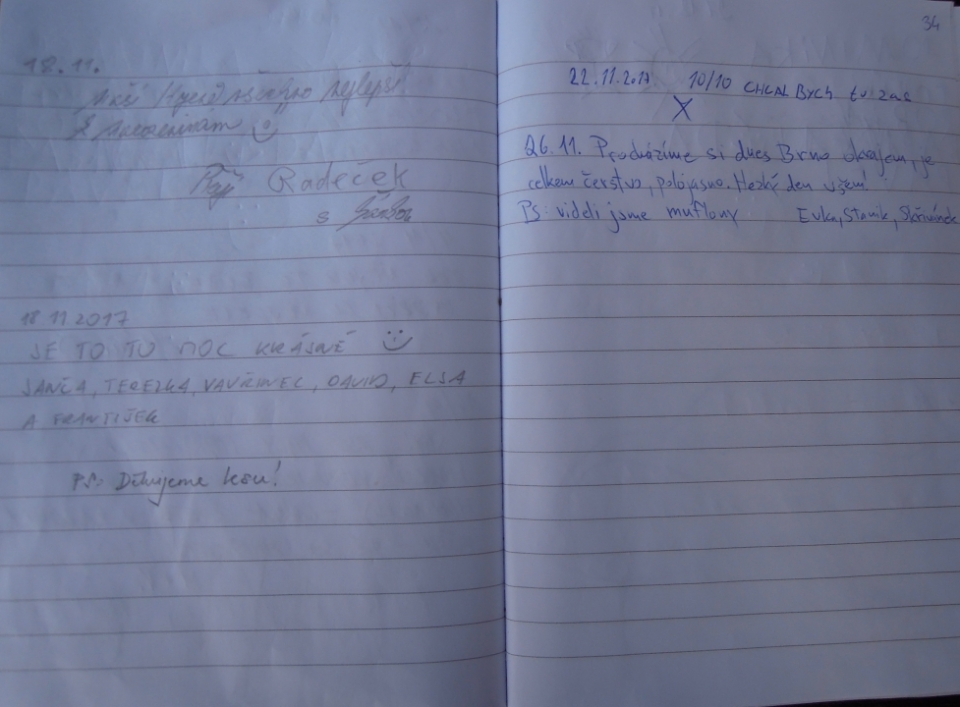 18.11.
všechno nejlepší
k narozeninám
Radeček
s
18 11 2017
JE TO TU MOC KRÁSNÉ
JANČA, TEREZKA, VAVŘINEC, DAVID, ELSA
A FRANTIŠEK
PS: Děkujeme
34
22.11.2017 10/10 CHCAL BYCH tu zas
X
26.11. Procházíme si dnes Brno okrajem, je
celkem čerstvo, polojasno. Hezký den všem!
PS: viděli jsme muflony Evka, Staník,